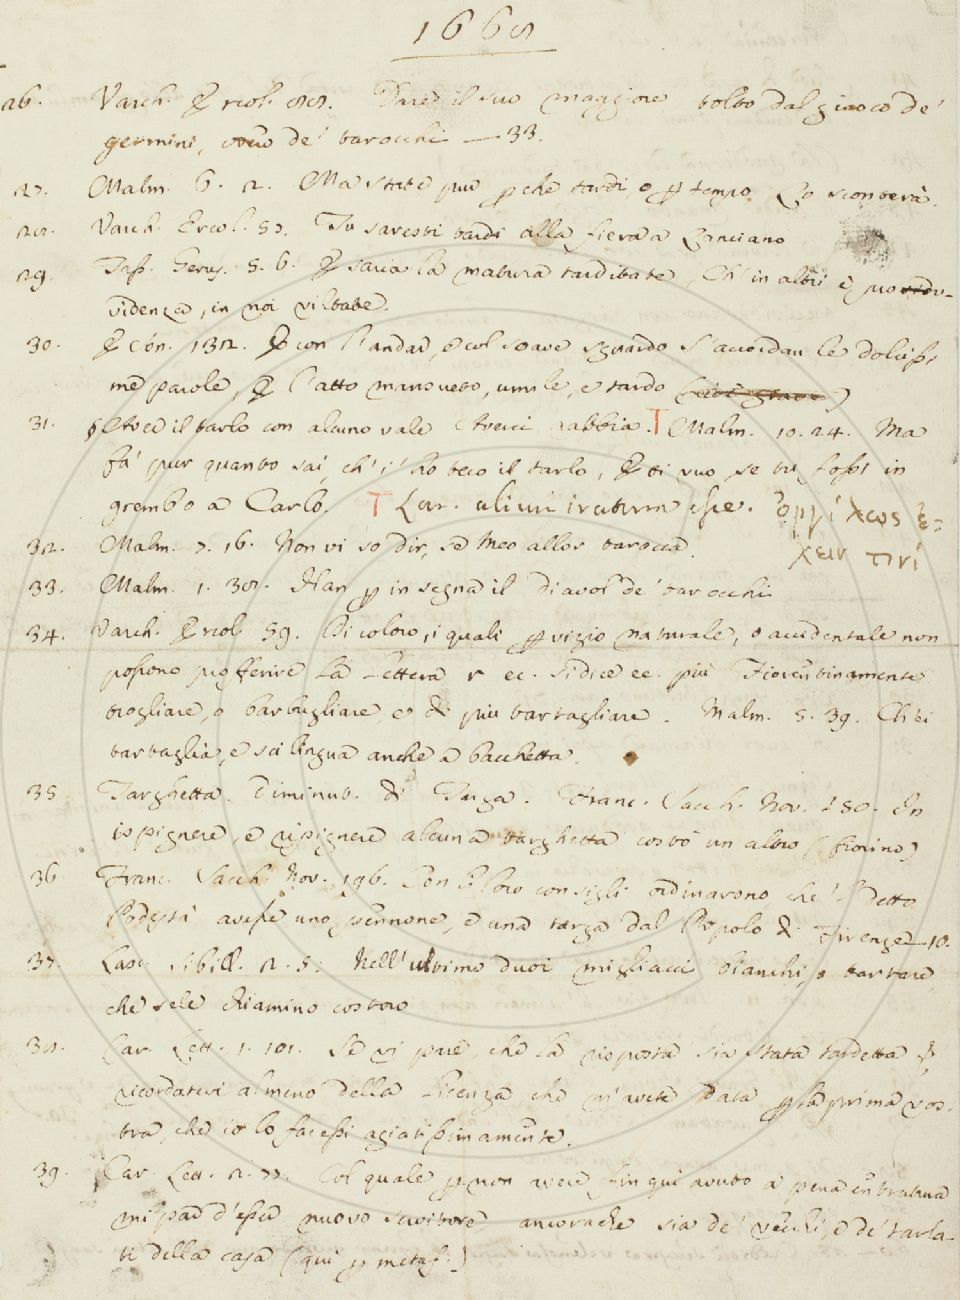 1668
26. Varch. Ercol. 88. Fare il suo maggiore tolto dal giuoco de'
germini, ovvero de' tarocchi — 33.
27. Malm. 6. 2. Ma state pur che tardi, o per tempo Lo sconterà.
28. Varch. Ercol. 57. Tu saresti tardi alla fiera a Lanciano
29. Tass. Gerus. 5. 6. E saria la matura tarditate, Ch' in altri è pro
videnza, in noi viltate.
30. E con. 132. E con l'andar, e col soave sguardo S' accordan le dolciss
me parole, E l'atto mansueto, umile, e tardo
31. Aver il tarlo con alcuno vale Averci rabbia. T Malm. 10. 24. Ma
fa' pur quanto sai, ch' i' ho teco il tarlo, E ti vuo, se tu fossi in
grembo a Carlo. T Lat. alicui iratum esse. ὀργίλως ἔ-
χειν τινί
32. Malm. 7. 16. Non vi so dir, se Meo allor tarocca.
33. Malm. 1. 38. Han per insegna il Diavol de' tarocchi
34. Varch. Ercol. 59. Di coloro, i quali per vizio naturale, o accidentale non
possono profferire la lettera r ec. si dice ec. più Fiorentinamente
trogliare, o barbugliare, e di più tartagliare. Malm. 5. 39. Ch' ei
tartaglia, e scilingua anche a bacchetta.
35. Targhetta. Diminut. di Targa. Franc. Sacch. Nov. 150. In
ispignere, e rispignere alcuna targhetta costò un altro (fiorino)
36. Franc. Sacch. Nov. 196. Con li loro consigli ordinarono, che 'l detto
Podestà avesse uno pennone, e una targa dal Popolo di Firenze — 10.
37. Lasc. Sibill. 2. 5. Nell' ultimo duoi migliacci bianchi, o tartare,
che sele chiamino costoro
38. Car. Lett. 1. 101. Se vi pare, che la risposta sia stata tardetta
ricordatevi almeno della licenza, che m'avete data per la prima vos-
tra, che io lo facessi agiatissimamente.
39. Car. Lett. 2. 77. Col quale per non avere fin qui avuto a pena entratura
mi par d'esser nuovo servitore ancorachè sia de' vecchi, e de' tarla-
ti della casa (qui per metaf.)